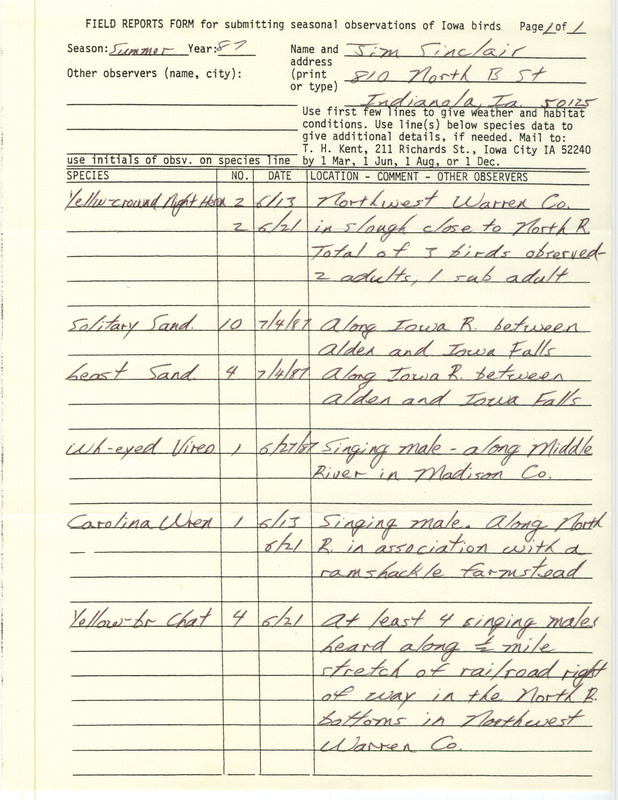 FIELD REPORTS FORM for submitting seasonal observations of Iowa birds Page 1 of 1
Season: Summer Year: 87
Name and address (print or type) Jim Sinclair
810 North B St
Indianola, Ia. 50125
Other observers (name, city):
Use first few lines to give weather and habitat
conditions. Use line(s) below species data to
give additional details, if needed. Mail to:
T. H. Kent, 211 Richards St., Iowa City IA 52240
use initials of obsv. on species line by 1 Mar, 1 Jun, 1 Aug, or 1 Dec.
SPECIES NO. DATE LOCATION - COMMENT - OTHER OBSERVERS
Yellow-crownd Night Heron 2 6/13 Northwest Warren Co.
2 6/21 in slough close to North R.
Total of 3 birds observed-
2 adults, 1 sub adult
Solitary Sand. 10 7/4/87 Along Iowa R. between
Alden and Iowa Falls
Least Sand. 4 7/4/87 Along Iowa R. between
Alden and Iowa Falls
Wh-eyed Vireo 1 6/27/87 Singing male - along Middle
River in Madison Co.
Carolina Wren 1 6/13 Singing male. Along North
— — 6/21 R. in association with a
ramshackle farmstead
Yellow-br Chat 4 6/21 At least 4 singing males
heard along ½ mile
stretch of railroad right
of way in the North R.
bottoms in Northwest
Warren Co.